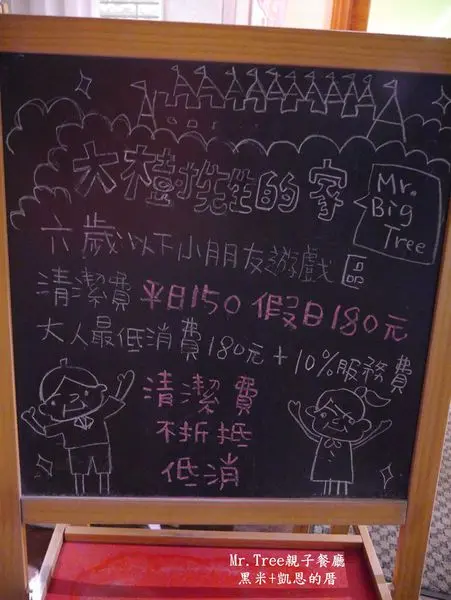 大樹先生的家
Mr.
Big
Tree
六歲以下小朋友遊戲區
清潔費 平日150 假日180元
大人最低消費180元+10%服務費
清潔費
不折抵
低消
Mr.Tree親子餐廳
黑米+凱恩的厝